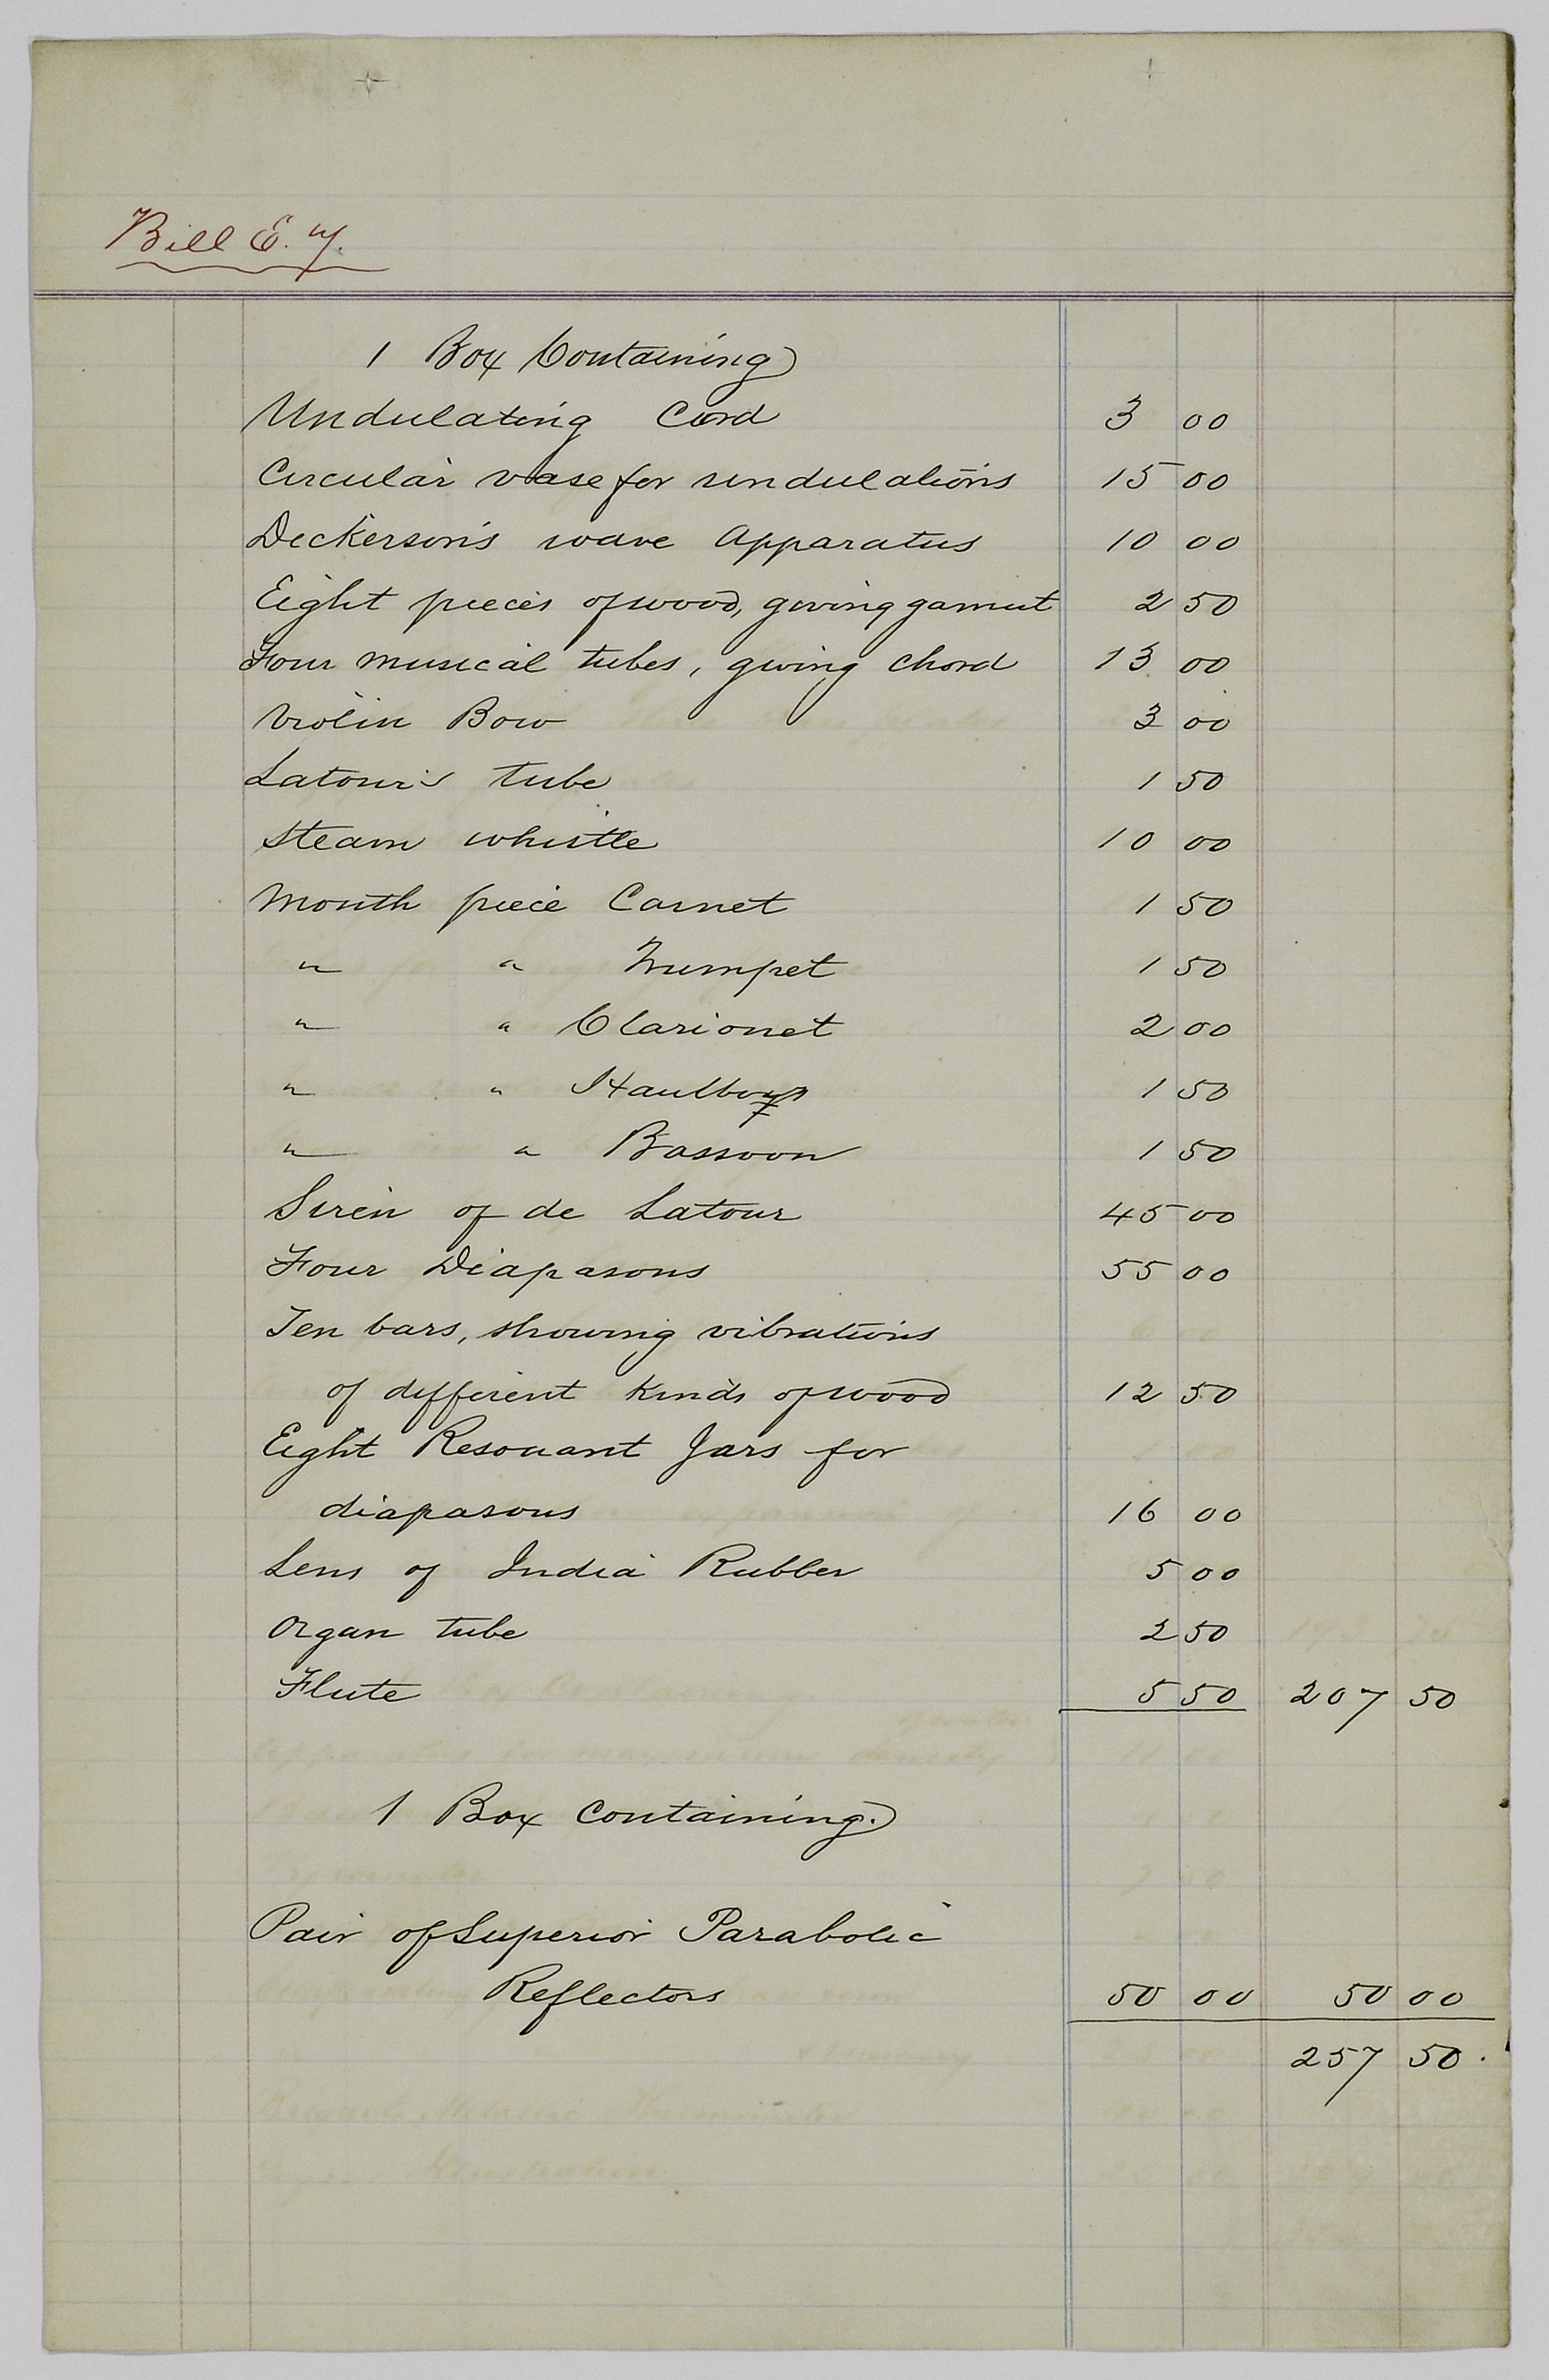 Bill E. Y.
1 Box Containing
Undulating Cord 3 00
Circular vase for undulations 15 00
Deckerson's wave Apparatus 10 00
Eight pieces of wood, giving gamut 2 50
Four musical tubes, giving chord 13 00
Violin Bow 3 00
Latour's tube 1 50
Steam whistle 10 00
Mouth piece Cornet 1 50
" " Trumpet 1 50
" " Clarionet 2 00
" " Hautboy 1 50
" " Bassoon 1 50
Siren of de Latour 45 00
Four Diapasons 55 00
Ten bars, showing vibrations
of different kinds of wood 12 50
Eight Resonant Jars for
diapasons 16 00
Lens of India Rubber 5 00
Organ tube 2 50
Flute 5 50 207 50
1 Box containing.
Pair of Superior Parabolic
Reflectors 50 00 50 00
257 50.